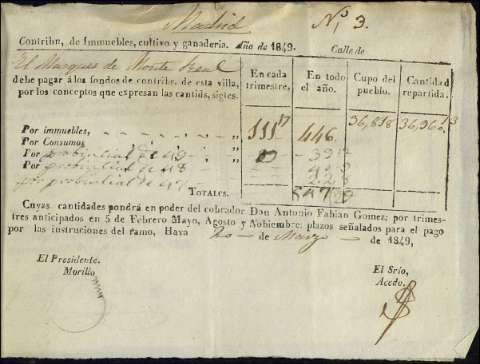 Madrid Nº 3.
Contribn. de Inmuebles, cultivo y ganaderia. Año de 1849. Calle de
El Marques de Monte Real
debe pagar á los fondos de contribn. de esta villa,
por los conceptos que expresan las cantids. sigtes.
En cada trimestre. En todo el año. Cupo del pueblo. Cantidad repartida.
Por inmuebles, „ 111 17 446 36,818 36,960
Por Consumos
Por provincial de
Por
provincial de
TOTALES.
Cuyas cantidades pondrá en poder del cobrador Don Antonio Fabian Gomez; por trimes-
tres anticipados en 5 de Febrero Mayo, Agosto y Nobiembre: plazos señalados para el pago
por las instruciones del ramo, Haya 20 de Marzo de 1849,
El Presidente. El Srio,
Morillo Acedo.